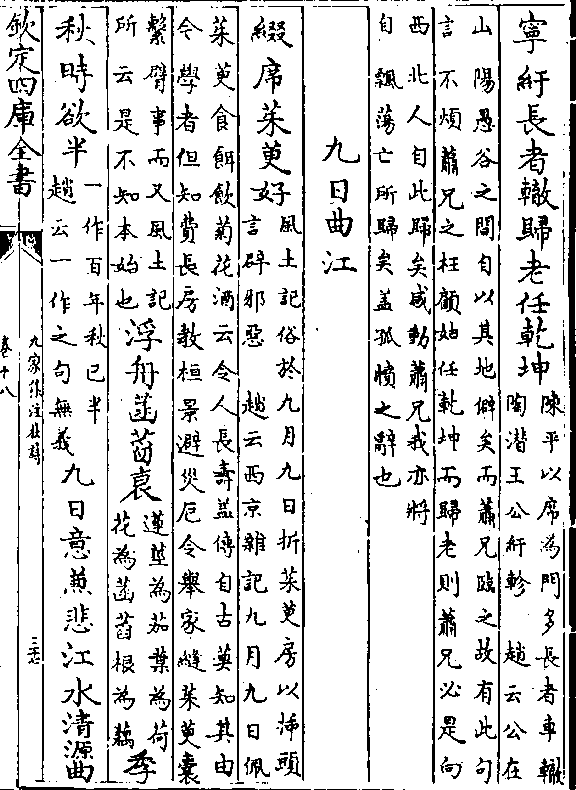 寧紆長者轍歸老任乾坤
陳平以席為門多長者車轍
陶潛王公紆軫 趙云公在
山陽愚谷之間自以其地僻矣而蕭兄臨之故有此句
言不煩蕭兄之枉顧始任乾坤而歸老則蕭兄必是向
西北人自此歸矣感動蕭兄我亦將
自飄蕩亡所歸矣盖孤憤之辭也
九日曲江
綴席茱萸好
風土記俗於九月九日折茱萸房以插頭
言辟邪惡 趙云西京雜記九月九日佩
茱萸食餌飲菊花酒云令人長壽盖傳自古莫知其由
令學者但知費長房教桓景避災厄令舉家縫茱萸囊
繫臂事而又風土記
所云是不知本始也
浮舟菡萏衰
蓮莖為茄葉為荷
花為菡萏根為藕
季
秋時欲半
一作百年秋已半
趙云一作之句無義
九日意兼悲江水清源曲
欽定四庫全書
九家集注杜詩
卷十八